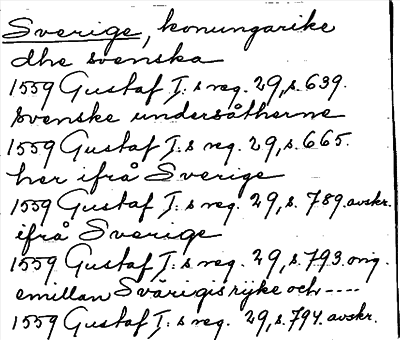 Sverige, konungarike
dhe svenska
1559 Gustaf I:s reg. 29, s. 639.
svenske undersåtherne
1559 Gustaf I:s reg. 29, s. 665.
her ifrå Sverige
1559 Gustaf I:s reg. 29, s. 789. avskr.
ifrå Sverige
1559 Gustaf I:s reg. 29, s. 793. orig.
emillan Svärigis rijke och ----
1559 Gustaf I:s reg. 29, s. 794. avskr.